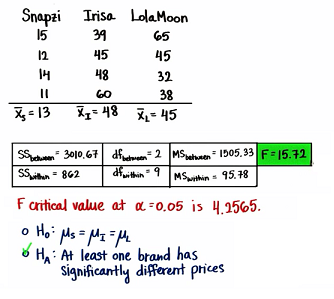 Snapzi Irisa LolaMoon
15 39 65
12 45 45
14 48 32
11 60 38
x̄s = 13 x̄I = 48 x̄L = 45
SSbetween = 3010.67 dfbetween = 2 MSbetween = 1505.33 F = 15.72
SSwithin = 862 dfwithin = 9 MSwithin = 95.78
F critical value at α = 0.05 is 4.2565.
H₀: μs = μI = μL
HA: At least one brand has
significantly different prices